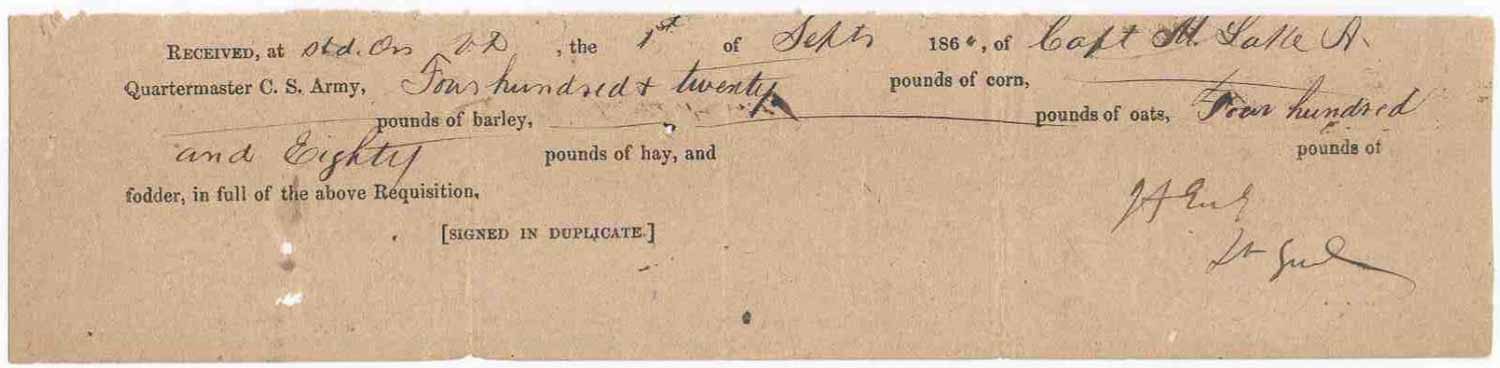 RECEIVED, at Std. Crs , the 1st of Septr 186 , of Capt M. Lake A.
Quartermaster C. S. Army, Four hundred & twenty pounds of corn,
pounds of barley, pounds of oats, Four hundred
and Eighty pounds of hay, and pounds of
fodder, in full of the above Requisition.
[SIGNED IN DUPLICATE.]